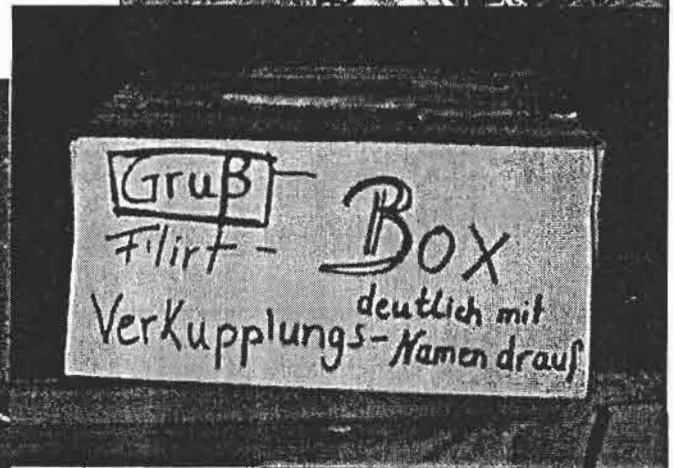 Gruß-
Flirt-
Box
Verkupplungs-
deutlich mit
Namen drauf